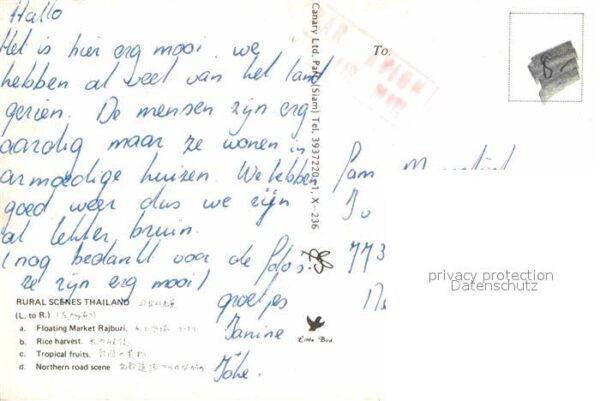 Hallo
Het is hier erg mooi. we
hebben al veel van het land
gezien. De mensen zijn erg
aardig maar ze wonen in
armoedige huizen. We hebben
goed weer dus we zijn
al lekker bruin.
(nog bedankt voor de foto's
ze zijn erg mooi)
groetjes
Janine
RURAL SCENES THAILAND
(L. to R.)
a. Floating Market Rajburi.
b. Rice harvest.
c. Tropical fruits.
d. Northern road scene
Canary Ltd. Part. (Siam) Tel. 3937220-1, X-236
Little Bird
PAR AVION
AIR MAIL
To:
8-
Fam
773
privacy protection
Datenschutz